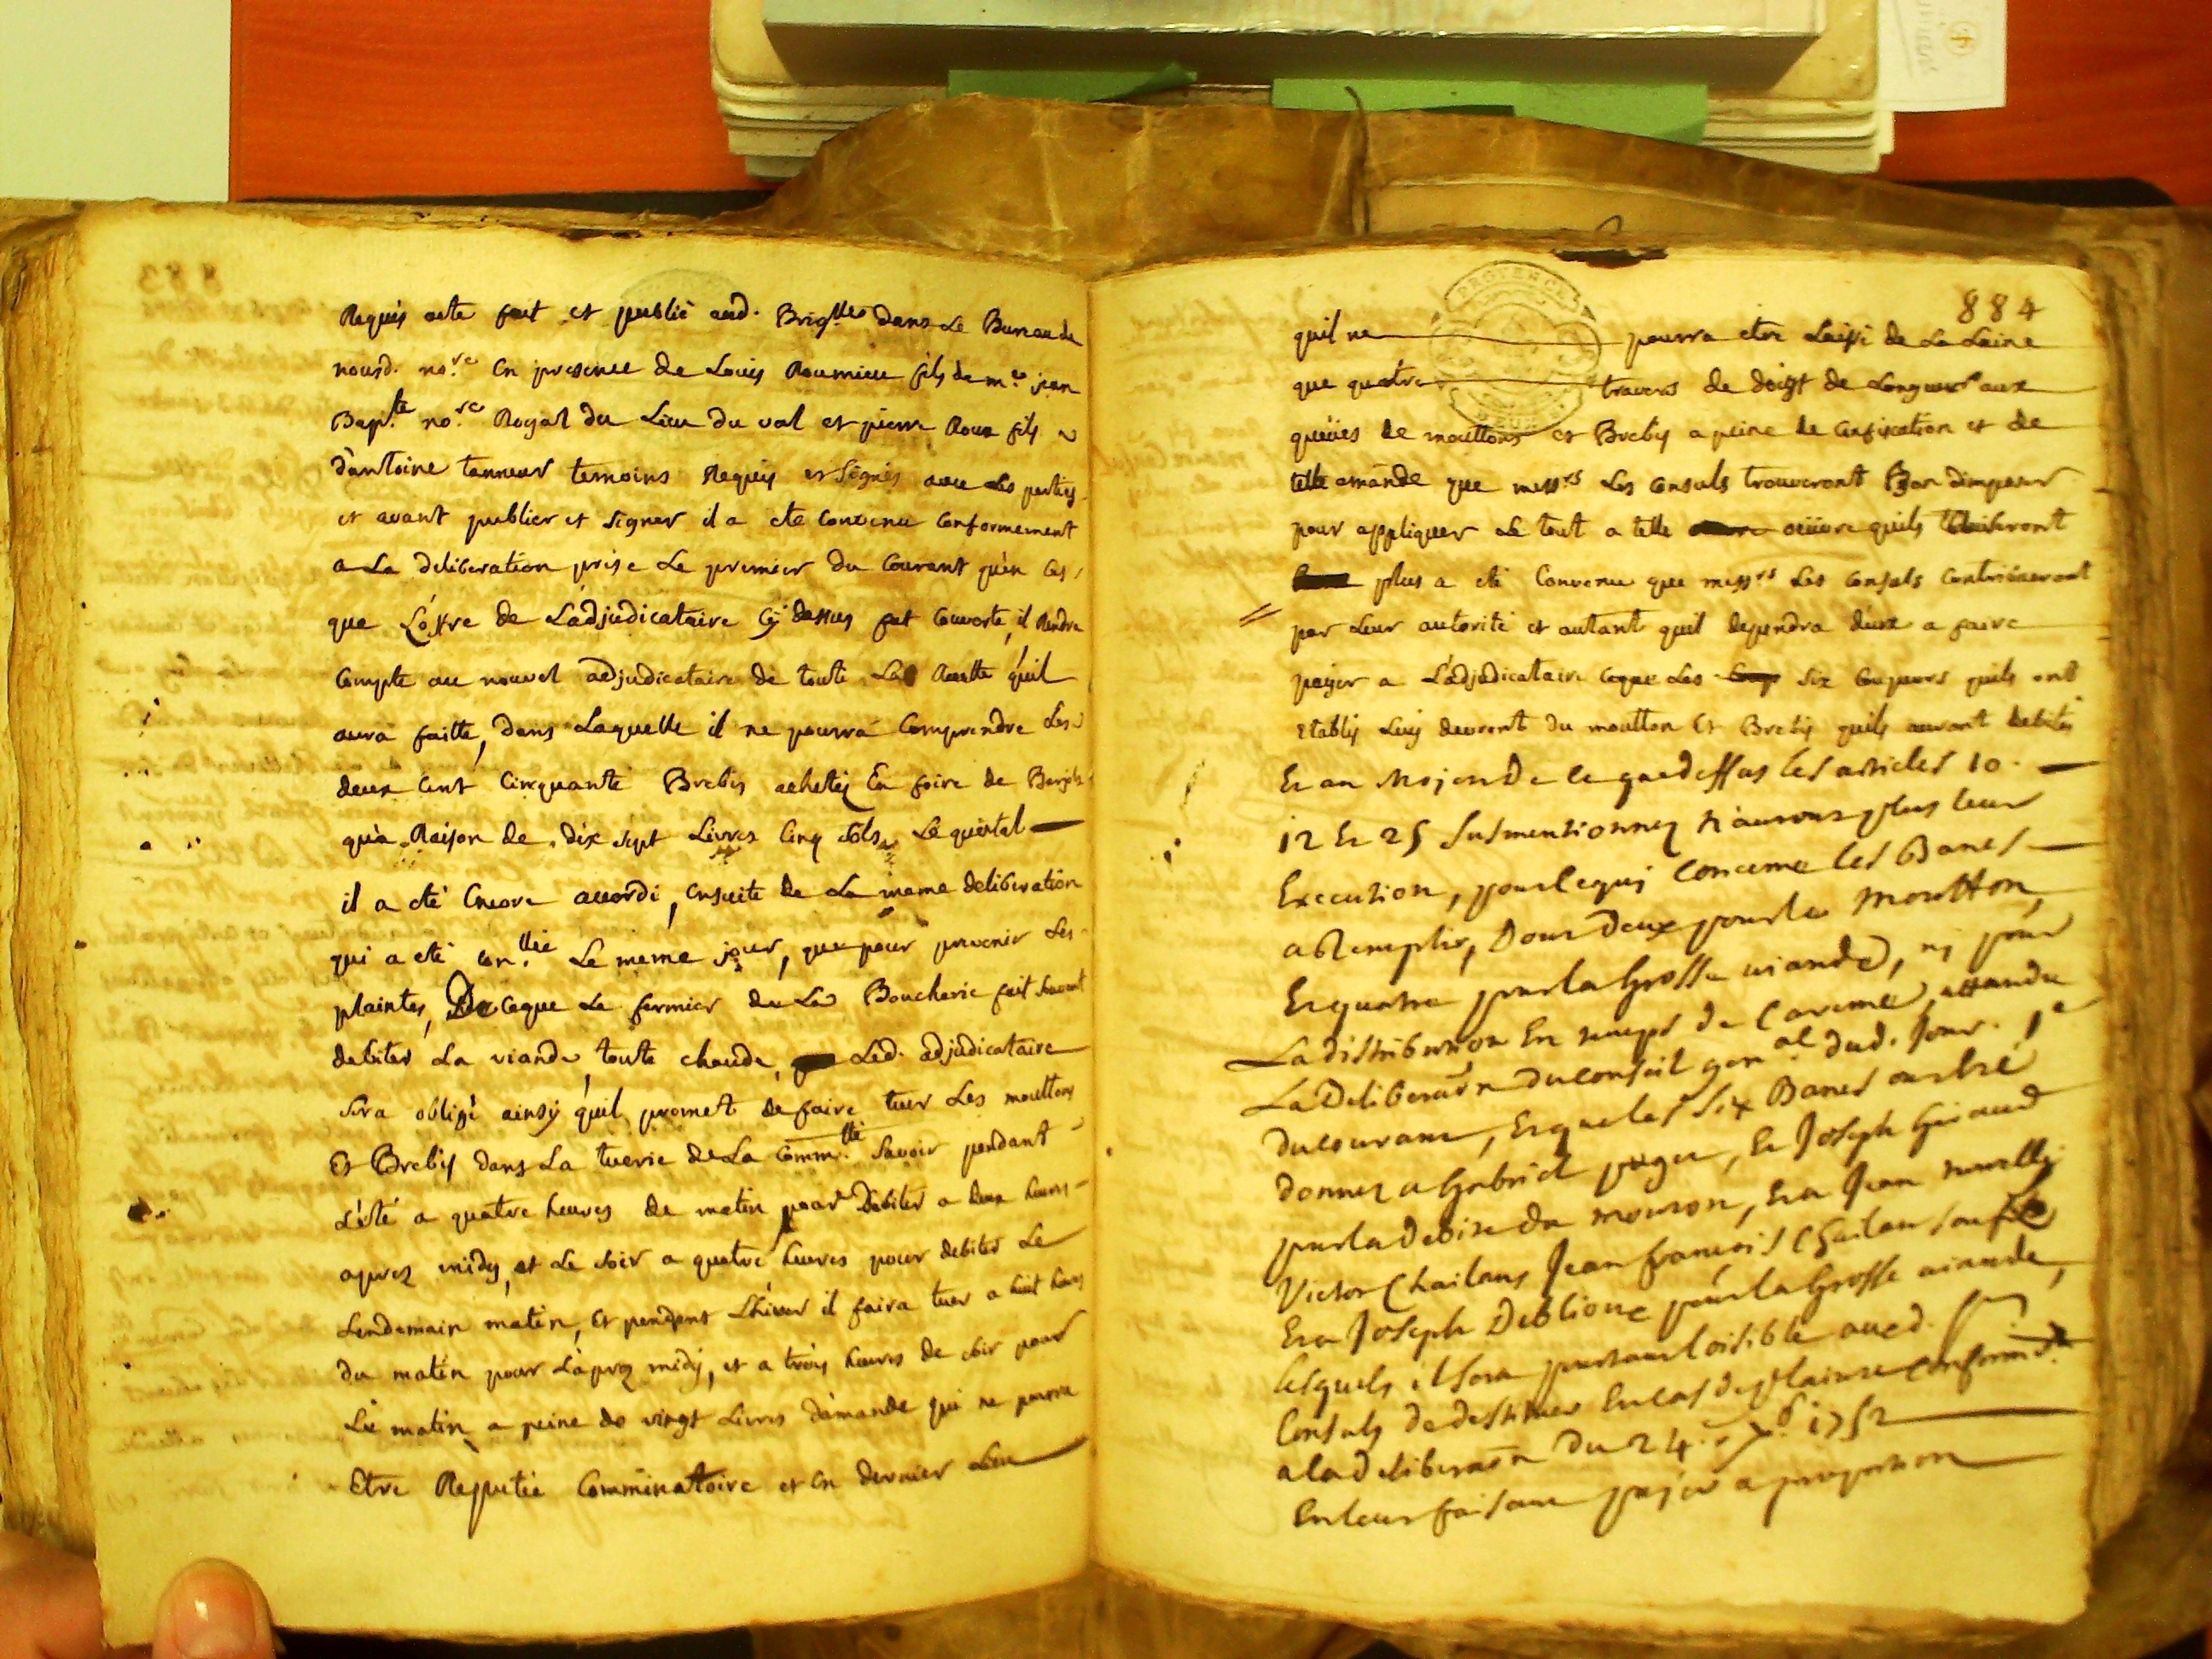 Requis acte fait et publié aud. Brig.lles dans Le Bureau de
nousd. no.re En presence de Louis Roumieu fils de m.e jean
Bap.te no.re Royal du Lieu du val et pierre Roux fils
d'antoine tanneur temoins Requis et Signés avec Les parties
et avant publier et signer il a eté Convenu Conformement
a La deliberation prise Le premier du Courant qu'en Cas
que L'offre de L'adjudicataire Cy dessus fut Couverte, il Rendra
Compte au nouvel adjudicataire de toute La Recette qu'il
aura faitte, dans Laquelle il ne pourra Comprendre Les
deux Cent Cinquante Brebis achetéz En foire de Barjols
qu'a Raison de dix sept Livres Cinq sols Le quintal
il a eté Encore accordé, Ensuite de La meme deliberation
qui a eté Le meme jour, que pour prevenir Les
plaintes, De Ceque Le fermier de La Boucherie fait souvent
debiter La viande toute chaude, Led. adjudicataire
sera obligé ainsy qu'il promet de faire tuer Les mouttons
Et Brebis dans La tuerie de La Comm.té Savoir pendant
L'été a quatre heures de matin pour Debiter a deux heures
aprez midy, et Le soir a quatre heures pour debiter Le
Lendemain matin, Et pendant L'hiver il faira tuer a huit heures
du matin pour L'aprez midy, et a trois heures de soir pour
Le matin a peine de vingt Livres d'amande qui ne pourra
Etre Reputée Comminatoire et En dernier Lieu
884
PROVENCE
quil ne pourra etre Laissé de La Laine
que quatre travers de doigt de Longueur aux
queües de mouttons et Brebis a peine de Confiscation et de
telle amande que mess.rs Les Consuls trouveront Bon d'imposer
pour appliquer Le tout a telle oeüvre quils
plus a eté Convenu que mess.rs Les Consuls Contribueront
par Leur autorité et autant quil dependra d'eux a faire
payer a L'adjudicataire Ceque Les Six Coupeurs quils ont
Etablis Luy devront du moutton Et Brebis quils auront debités
Et au Moyen De ce que dessus les articles 10.
12 Et 25 susmentionnez n'auront plus leur
Execution, pour le qui Concerne les Bancs
a Remplir, Dont Deux pour le Moutton,
Et quatre pour la Grosse viande, ny pour
La distribution En temps de Careme, attandu
La Deliberãon du conseil gen.al dud. Jour. 1.er
du courant, Et que les Six Bancs ont été
donnez a Gabriel puget, Et Joseph Giraud
pour la Debite du mouton, Et a Jean
Victor Chailans Jean françois Chailan son fils
Et a Joseph Deblioux pour la Grosse viande,
lesquels il sera pourtant loisible auxd. Srs
Consuls de destituer En cas de plainte conformem.t
a la deliberãon du 24. 1752
En leur faisant payer a proportion